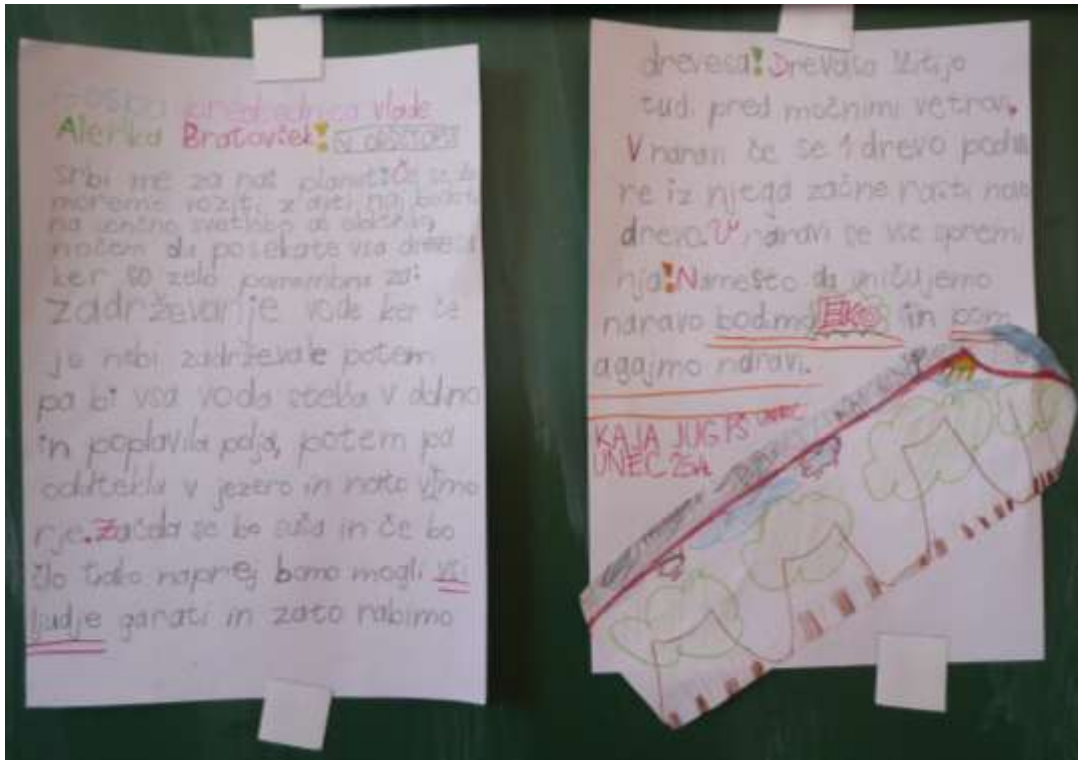 Gospa predsednica vlade
Alenka Bratovšek!
Skrbi me za naš planet. Če se že
moremo voziti z avti naj bodo
na sončno svetlobo
nočem da posekate vsa drevesa
ker so zelo pomembna za:
zadrževanje vode ker če
je nebi zadrževale potem
pa bi vsa voda stekla v dolino
in poplavila polja, potem pa
odtekla v jezero in nato v morje
rje. Začela se bo suša in če bo
šlo tako naprej bomo mogli vsi
ljudje garati in zato rabimo
drevesa! Drevesa ščitijo
tudi pred močnimi vetrovi.
V naravi če se 1 drevo podre
re iz njega začne rasti novo
drevo. V naravi se vse spremi
nja! Namesto da uničujemo
naravo bodimo EKO in pom
agajmo naravi.
KAJA JUG PŠ UNEC
UNEC 25A